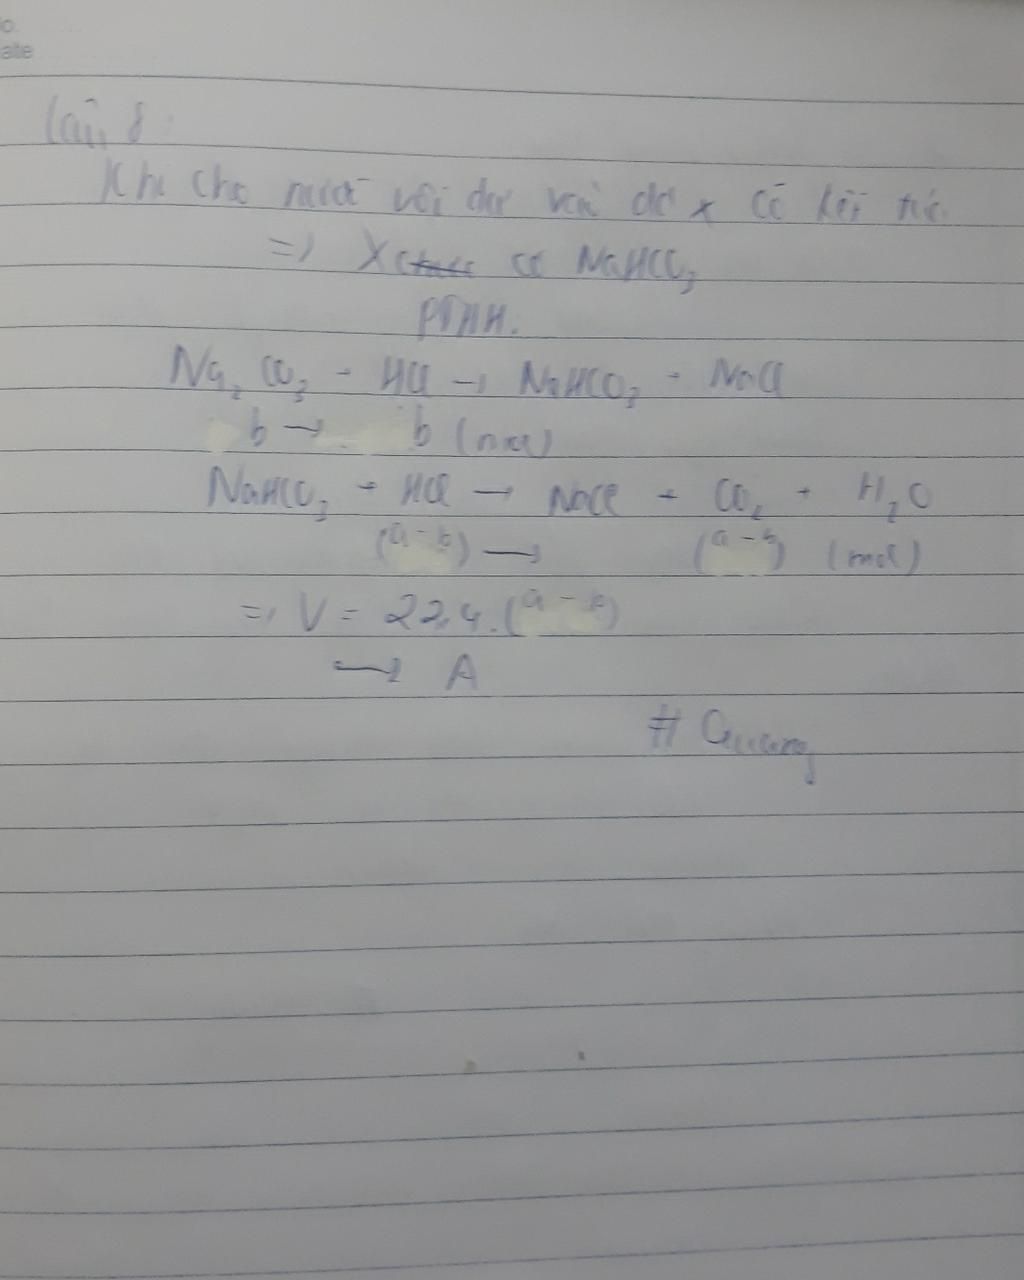 No.
Date
Câu 8:
Khi cho nước vôi dư vào dd X có kết tủa
=> X có NaHCO₃
PTHH:
Na₂CO₃ + HCl → NaHCO₃ + NaCl
b → b (mol)
NaHCO₃ + HCl → NaCl + CO₂ + H₂O
(a-b) → (a-b) (mol)
=> V = 22,4.(a-b)
→ A
# Quang